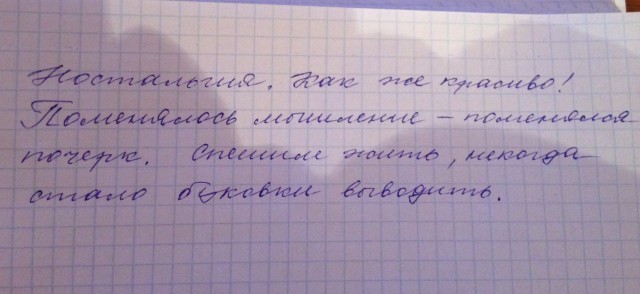 Ностальгия. Как же красиво!
Поменялось мышление – поменялся
почерк. Спешим жить, некогда
стало буковки выводить.